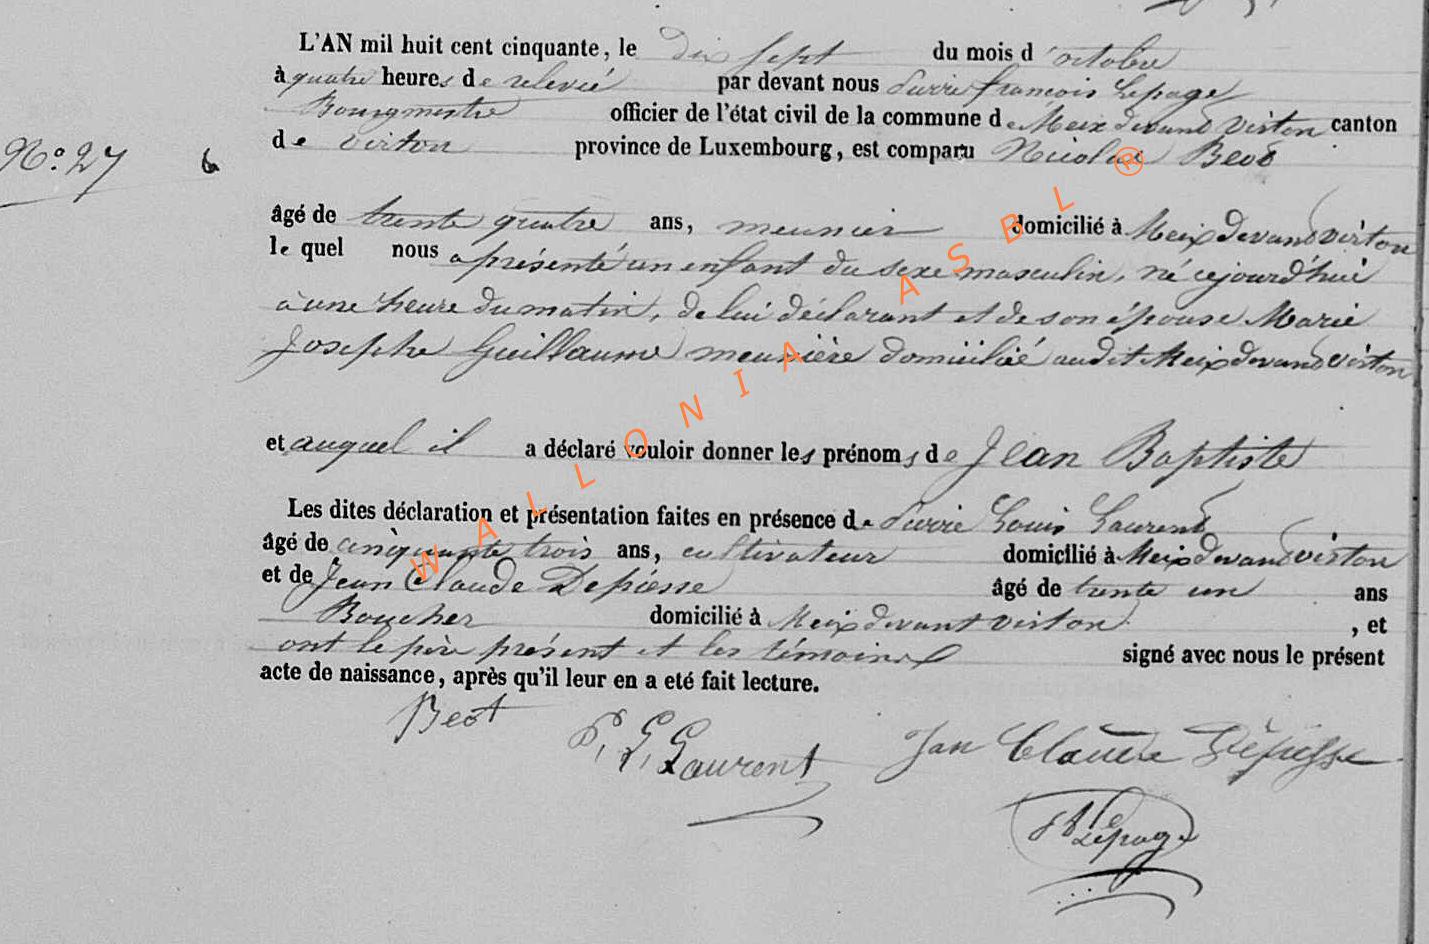 L'AN mil huit cent cinquante, le dix sept du mois d'octobre
à quatre heures de relevée par devant nous Pierre françois Lepage
Bourgmestre officier de l'état civil de la commune de Meix devant virton canton
N° 27 6 de virton province de Luxembourg, est comparu Nicolas Beot
âgé de trente quatre ans, meunier domicilié à Meix devant virton
lequel nous a présenté un enfant du sexe masculin, né cejourd'hui
à une heure du matin, de lui déclarant et de son épouse Marie
Josephe Guillaume meunière domiciliée audit Meix devant virton
et auquel il a déclaré vouloir donner les prénoms de Jean Baptiste
Les dites déclaration et présentation faites en présence de Pierre Louis Laurent
âgé de cinquante trois ans, cultivateur domicilié à Meix devant virton
et de Jean Claude Depiesse âgé de trente un ans
Boucher domicilié à Meix devant virton, et
ont le père présent et les témoins signé avec nous le présent
acte de naissance, après qu'il leur en a eté fait lecture.
Beot P. L. Laurent Jan Claude Dèpiesse
Lepage
WALLONIA ASBL ®